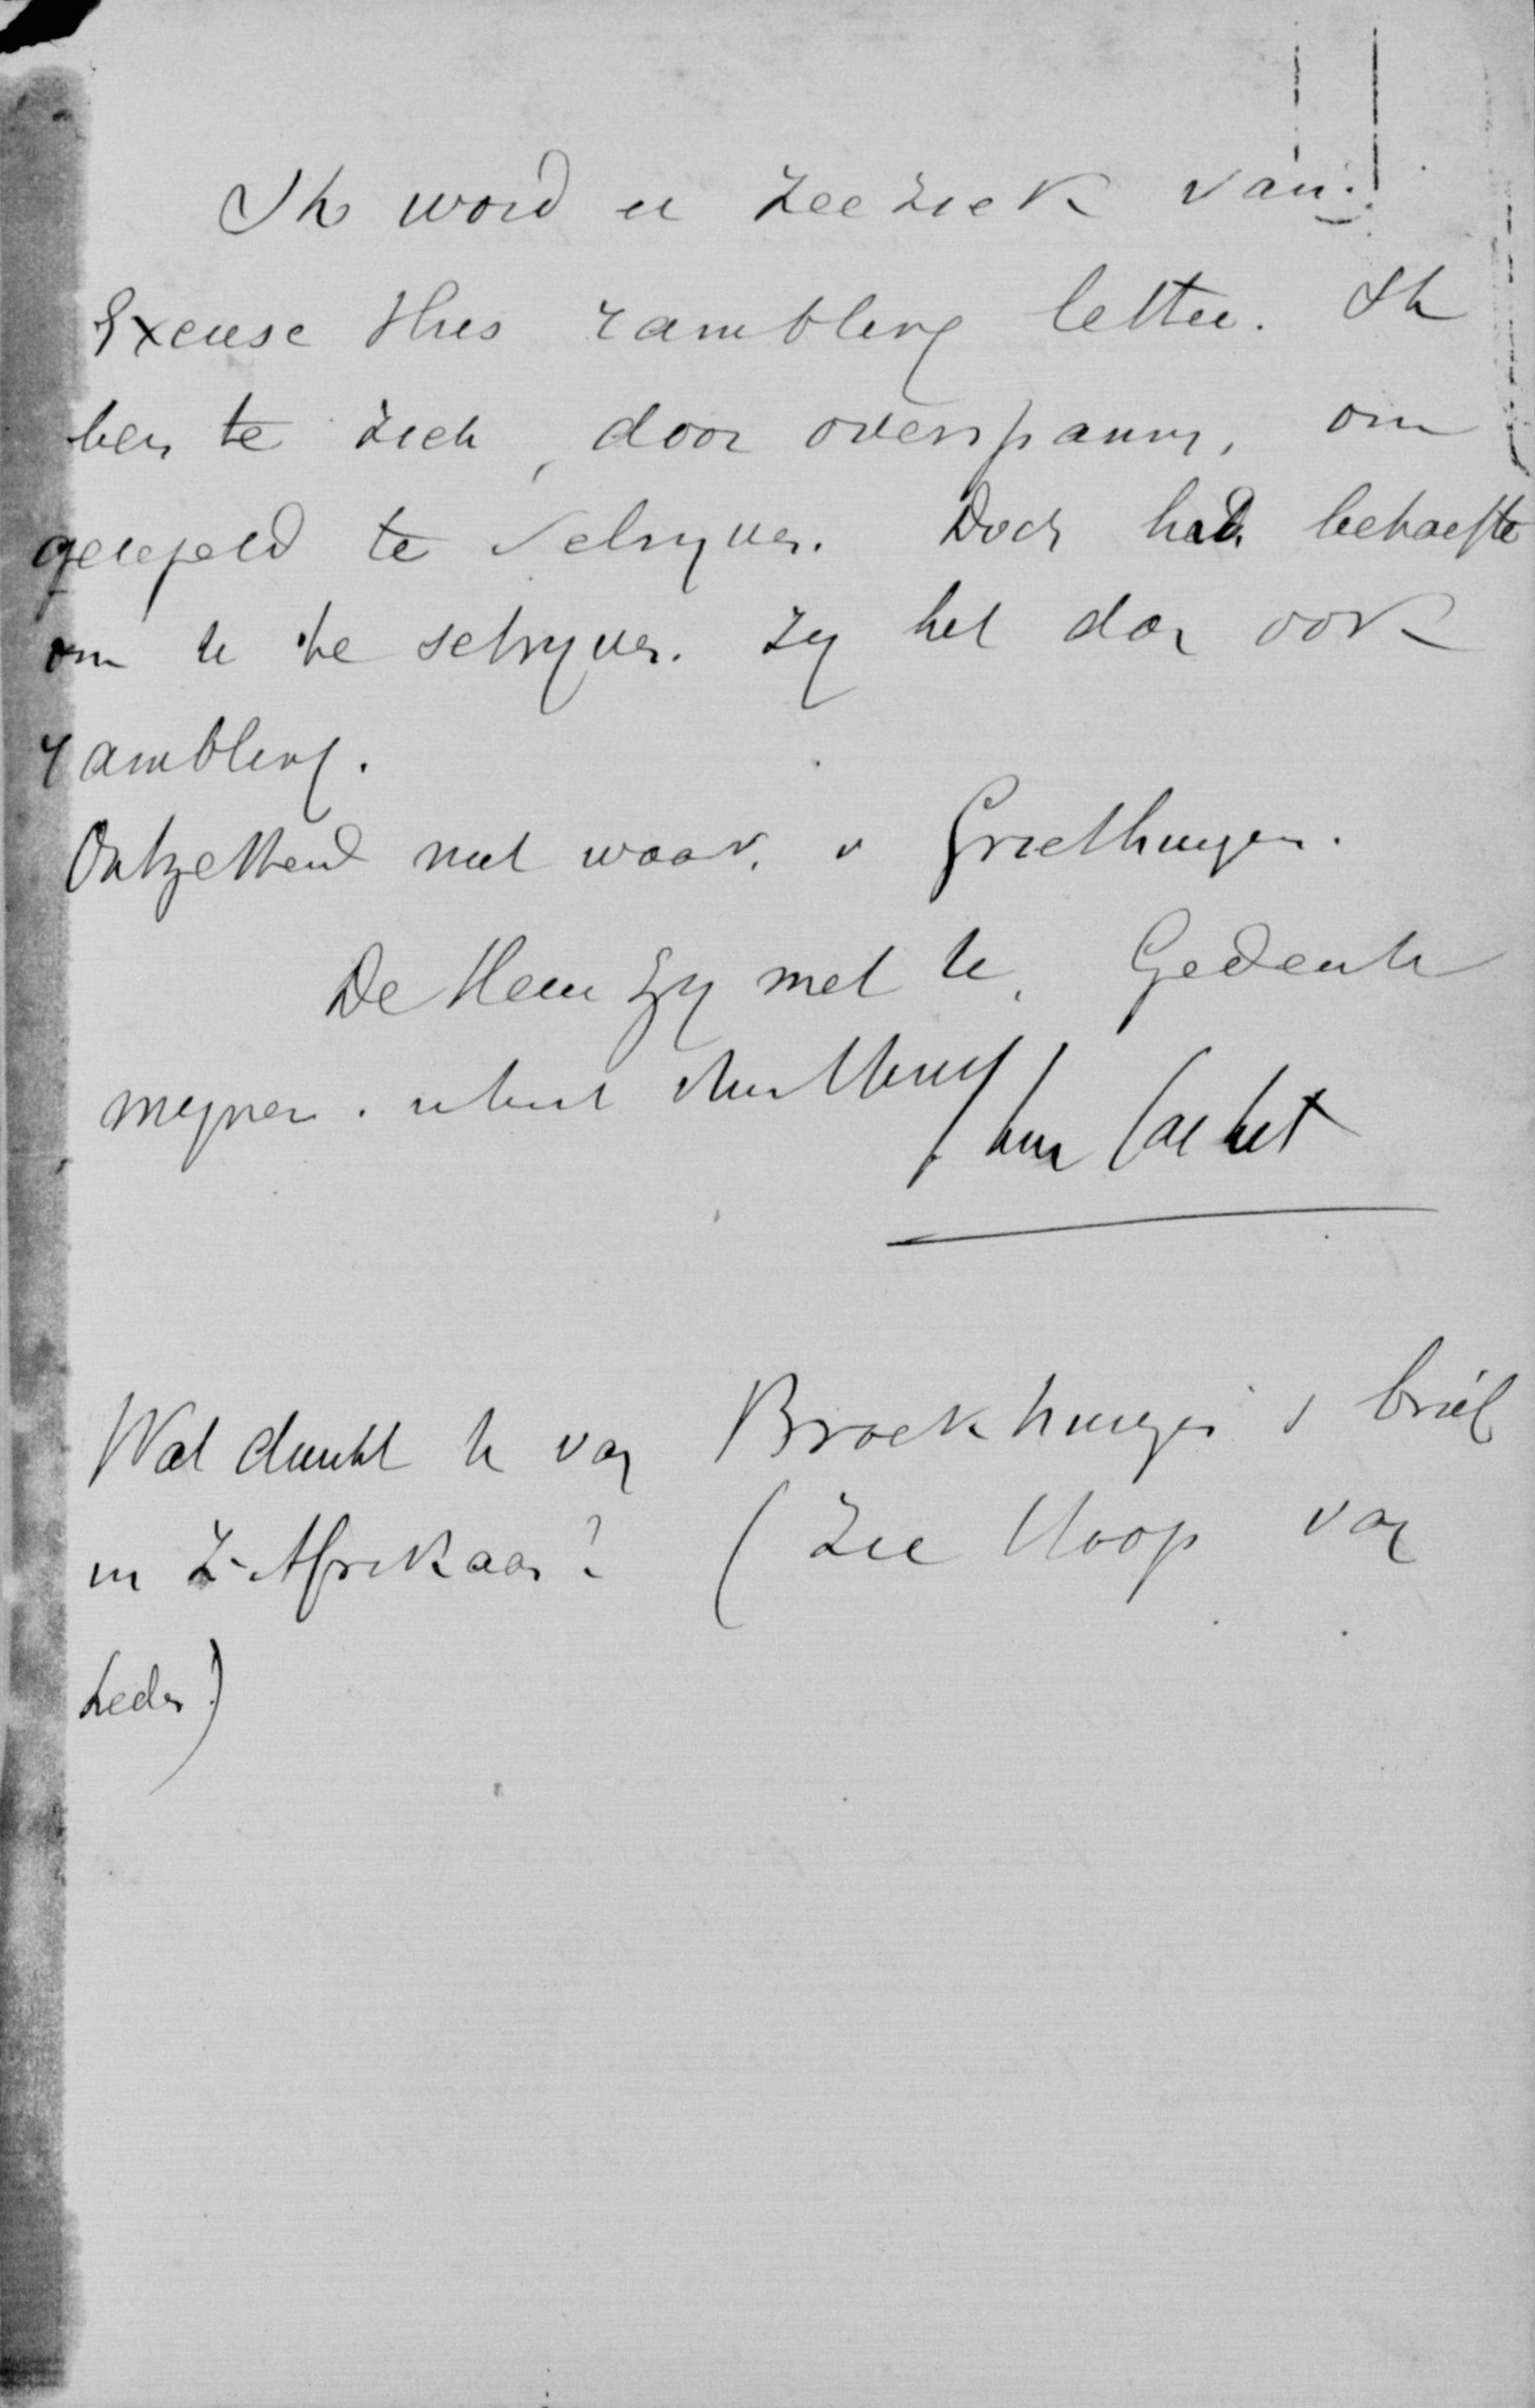 Ik word er zeeziek van.
Excuse this rambling letter. Ik
ben te ziek, door overspanng, om
geregeld te schryven. Doch had behoefte
om U te schryven. Zy het dan ook
rambling.
Ontzettend niet waar, v Griethuyzen.
De Heer zy met U. Gedenk
mynen.
Wat dunkt U van Broekhuyzen's brief
in Z-Afrikaan? (Zie Hoop van
heden)